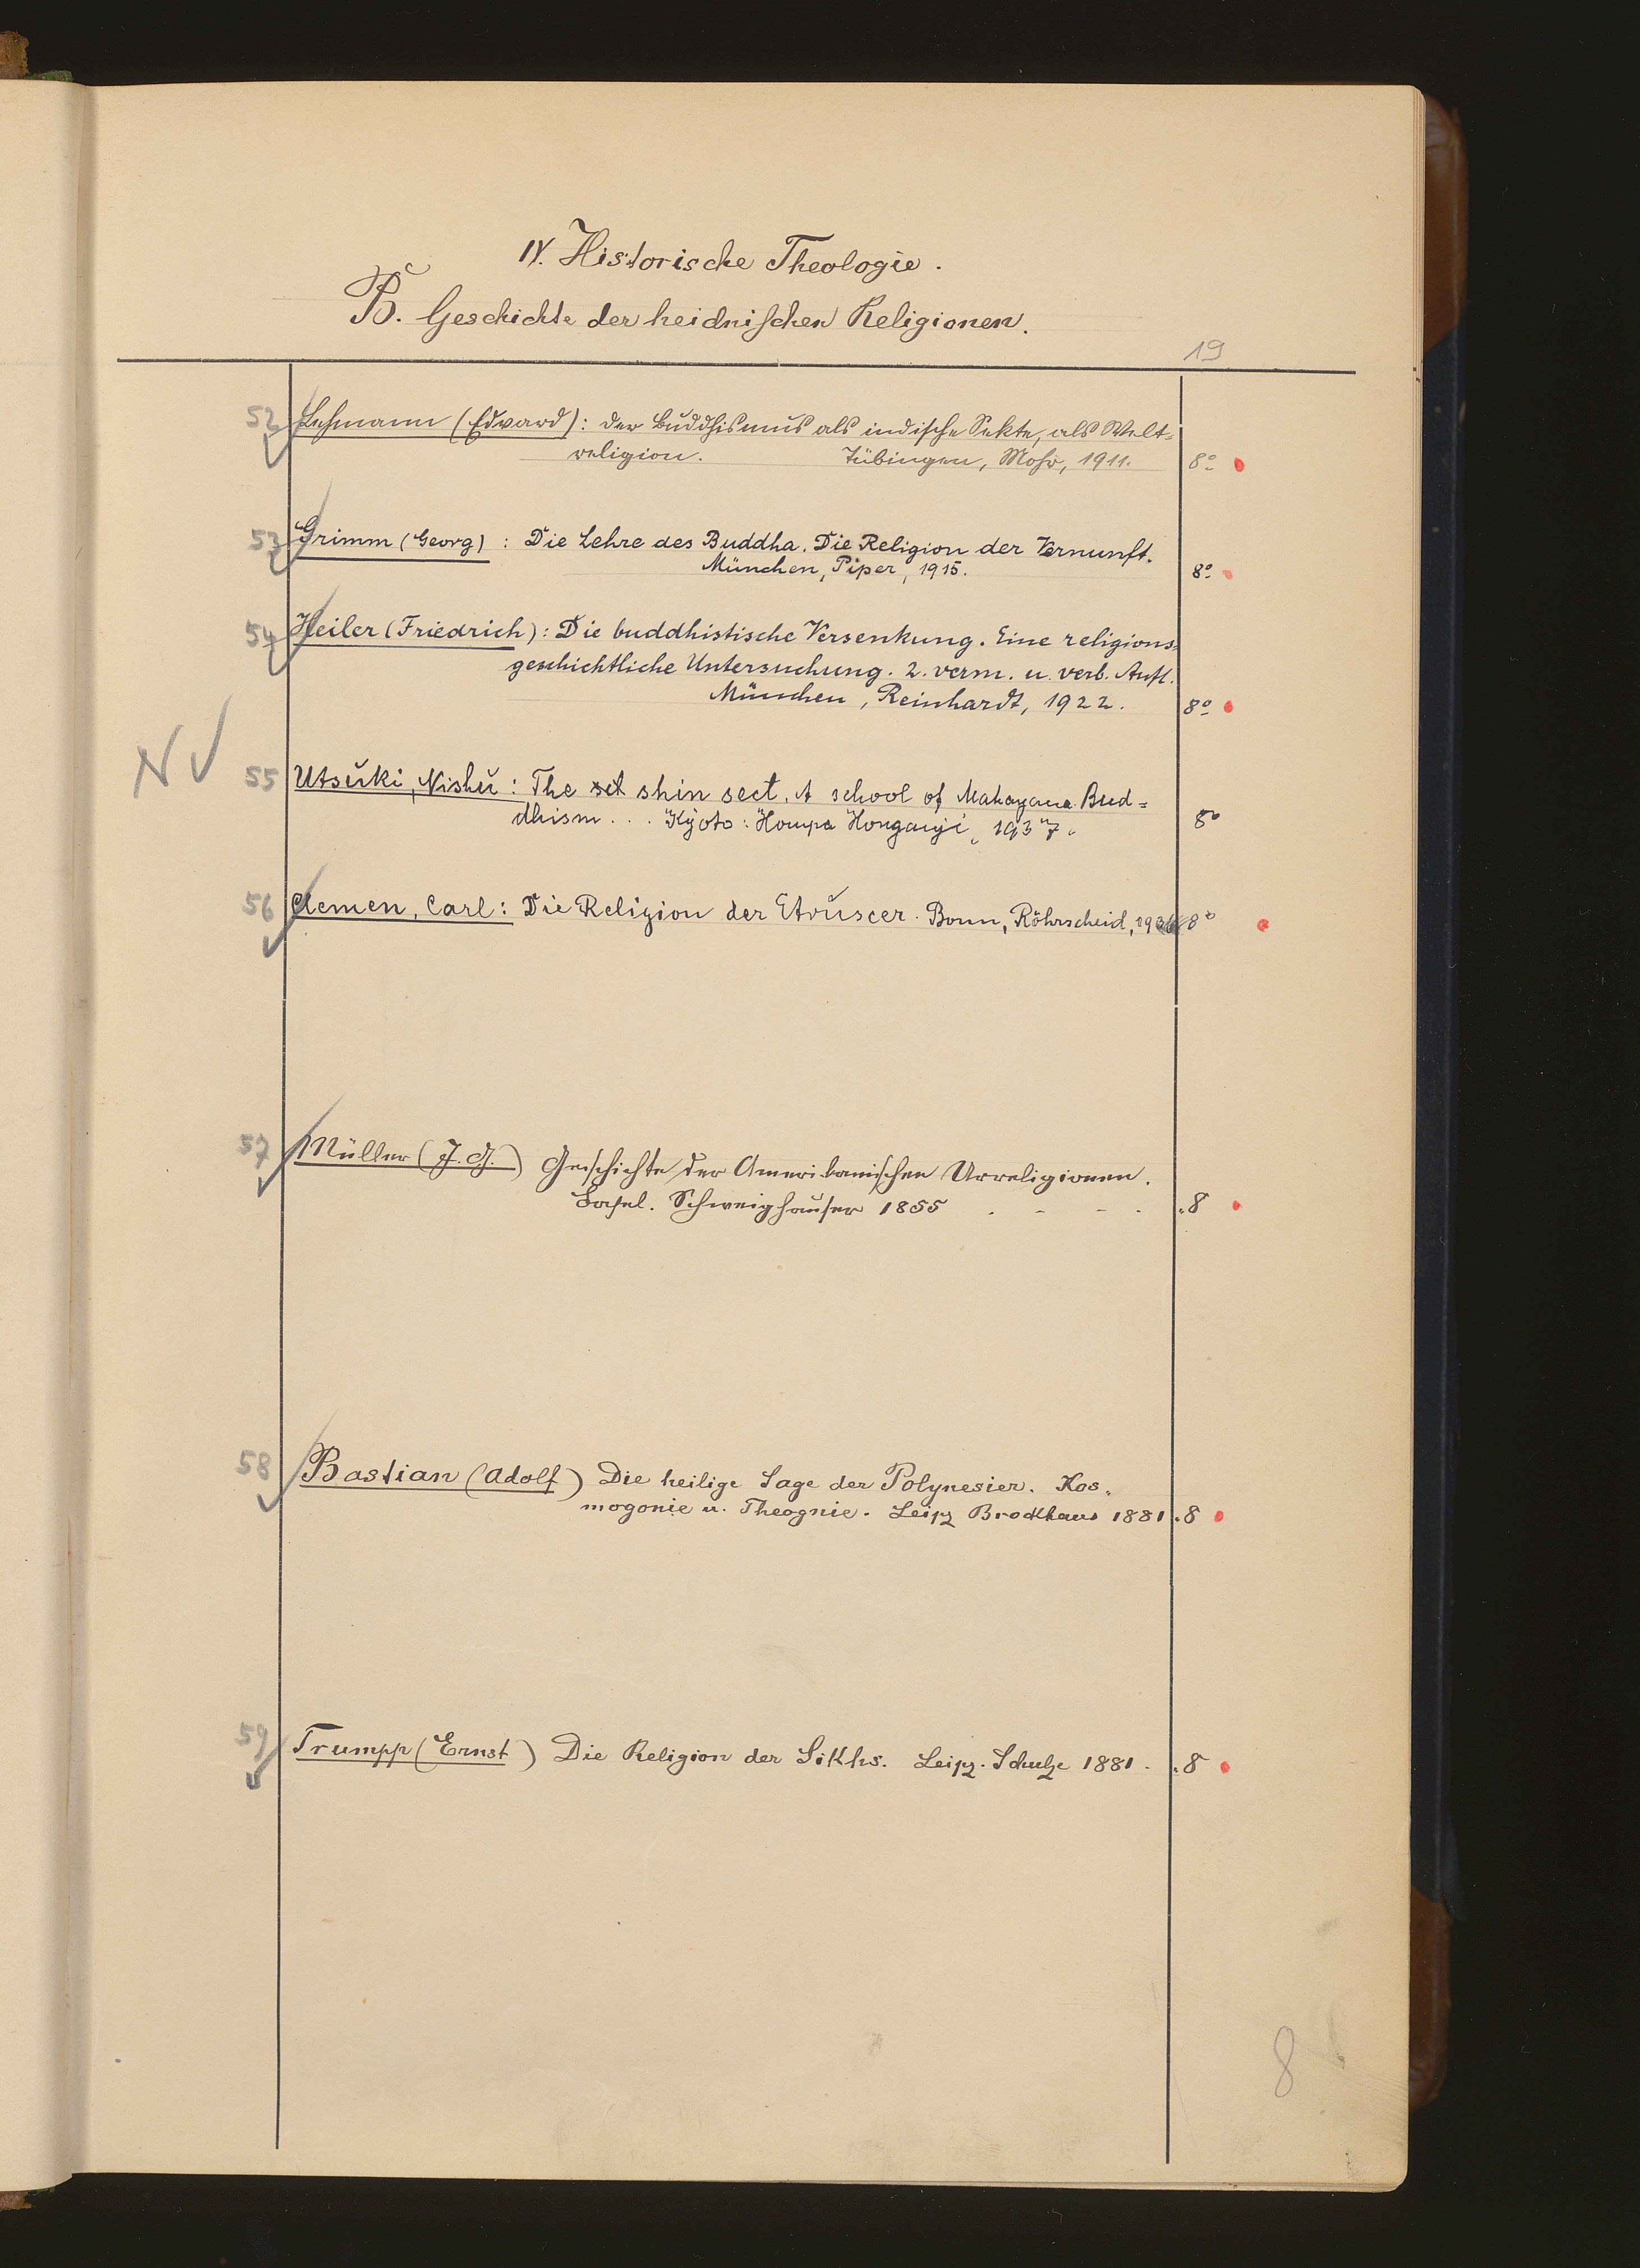 IV. Historische Theologie.
B. Geschichte der heidnischen Religionen.
19
52 Lehmann (Edvard): Der Buddhismus als indische Sekte, als Welt=
religion. Tübingen, Mohr, 1911. 8°
53 Grimm (Georg) : Die Lehre des Buddha. Die Religion der Vernunft.
München, Piper, 1915. 8°
54 Heiler (Friedrich): Die buddhistische Versenkung. Eine religions=
geschichtliche Untersuchung. 2. verm. u. verb. Aufl.
München, Reinhardt, 1922. 8°
NV 55 Utsuki, Nishu: The shin sect. A school of Mahayana Bud=
dhism... Kyoto: Hompa Hongwanji, 1937. 8°
56 Clemen, Carl: Die Religion der Etrusker. Bonn, Röhrscheid, 1936 8°
57 Müller (J. G.) Geschichte der Amerikanischen Urreligionen.
Basel. Schweighauser 1855 . - - . . 8
58 Bastian (Adolf) Die heilige Sage der Polynesier. Kos=
mogonie u. Theognie. Leipz Brockhaus 1881 . 8
59 Trumpp (Ernst) Die Religion der Sikhs. Leipz. Schulze 1881 . . 8
8